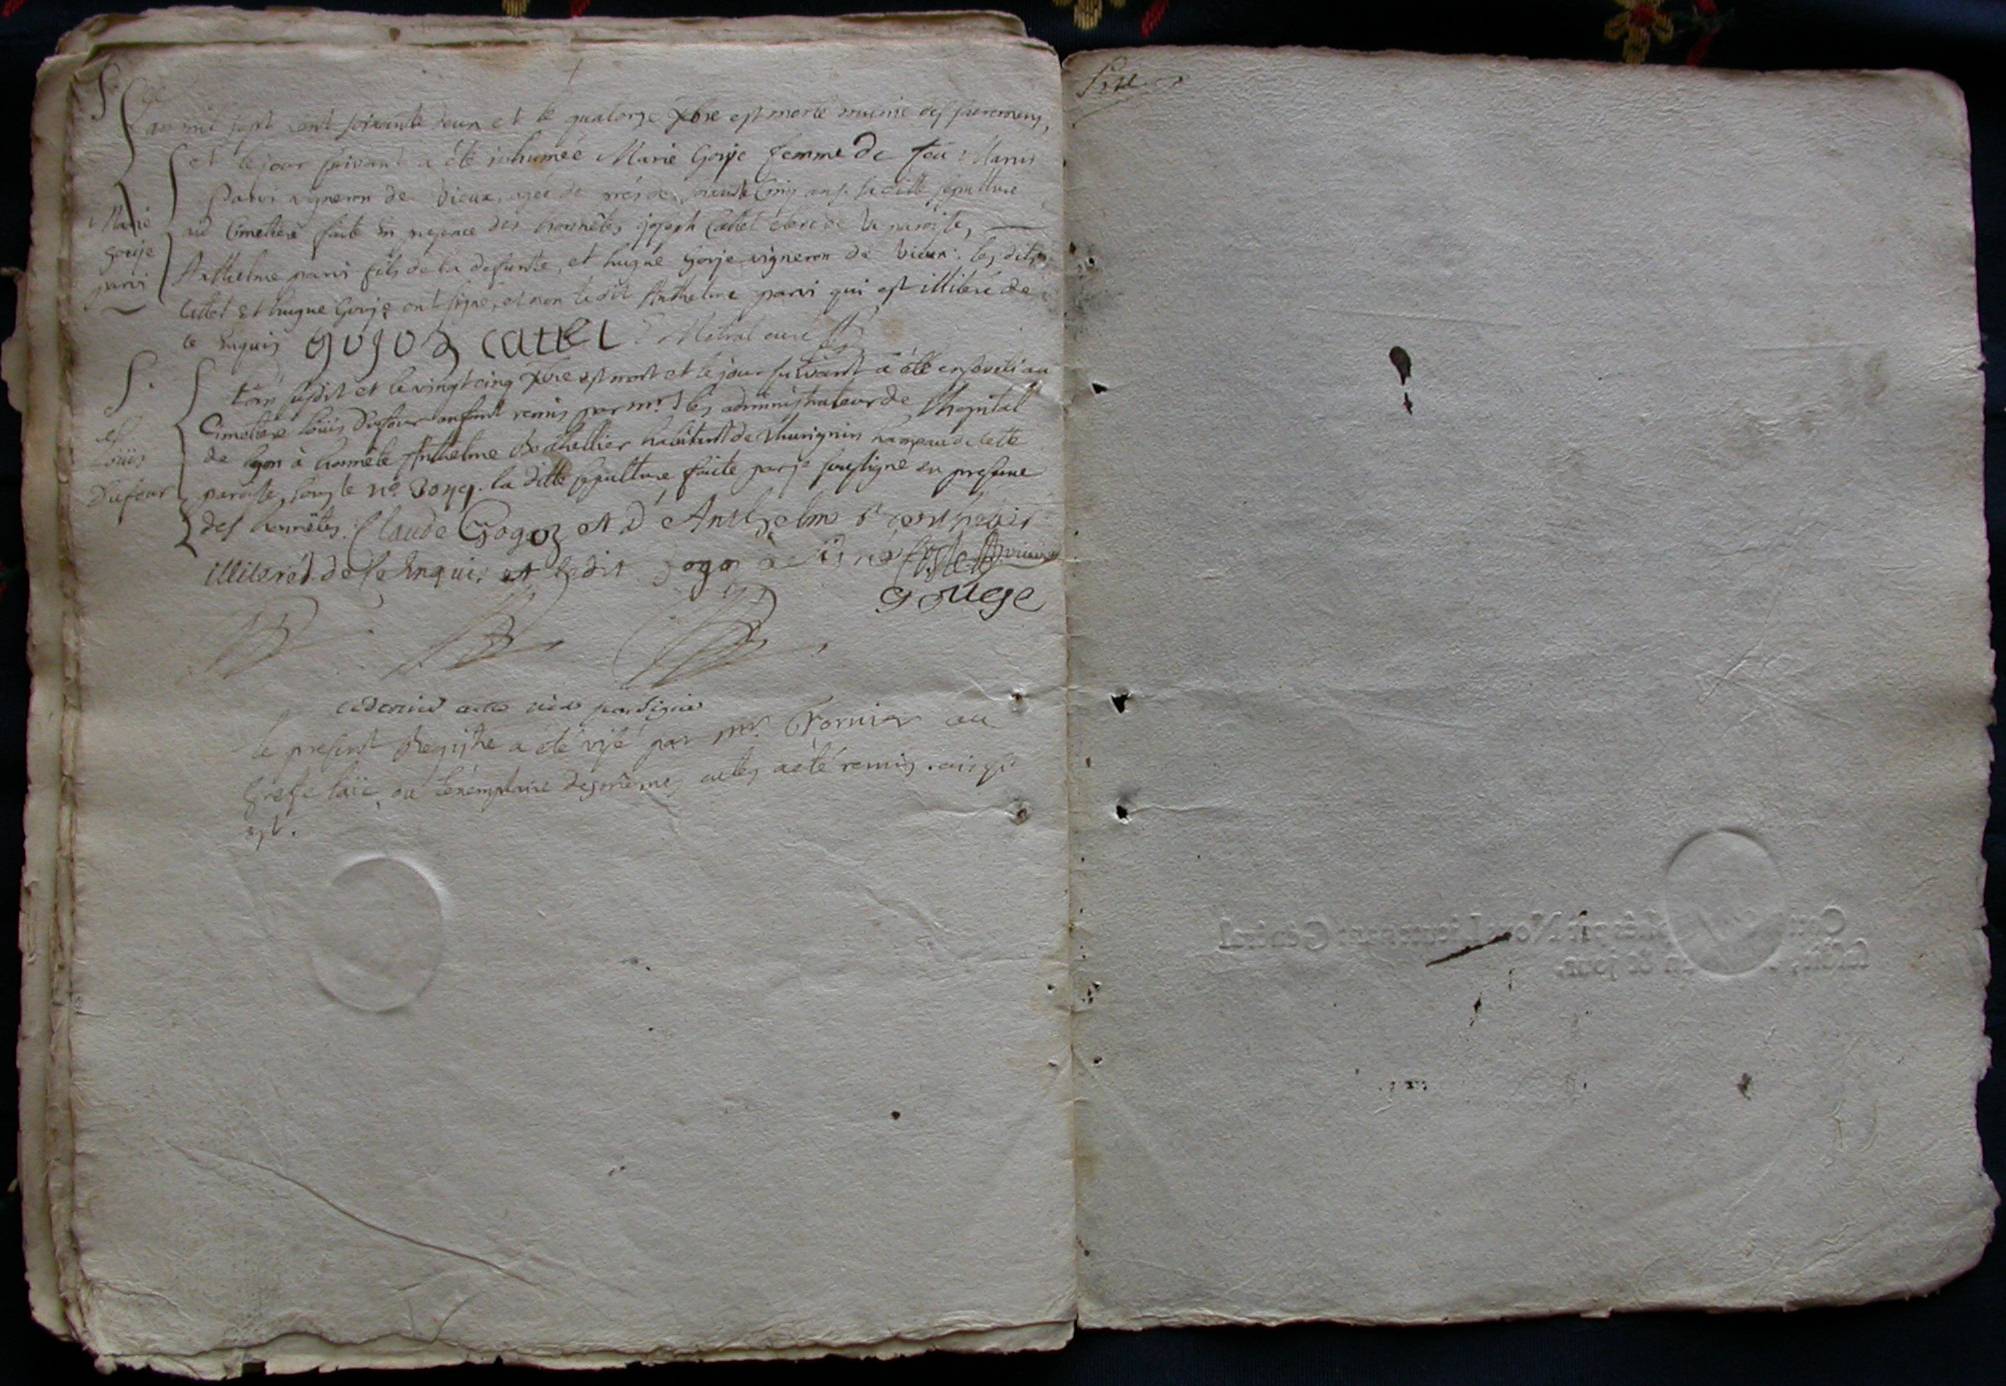 Sre
an mil sept cent soixante deux et le quatorze xbre est morte munie des sacremens,
et le jour suivant a été inhumée Marie Gouje femme de feu
Parvi vigneron de Vieux, agée de près de soixante cinq ans. la ditte sépulture
au Cimetiere faite en presence des honnêtes joseph Cattet clerc de la paroisse,
Anthelme parvi fils de la defunte, et hugue Gouje vigneron de Vieux. les dits
Cattet et hugue Gouje ont signé, et non le dit Anthelme parvi qui est illiteré de
ce enquis gojoz cattet Metral curé
Marie
Gouje
parvi
S.
Loüis
Dufour
l'an susdit et le vingt cinq xbre est mort et le jour suivant a été enseveli au
Cimetiere loüis Dufour enfant remis par mrs les administrateur de l'hopital
de lyon à honnête Anthelme habitant de Chavignin hameau de cette
paroisse, sous le no. la ditte sepulture faite par je soussigné en presence
des honnêtes. Claude Gogoz et d'Anthelme
illiteré de ce enquis et le dit gogoz a signé vicaire
gouge
ce dernier acte
le present Registre a été visé par mr. Fornier au
Grefe laïc, où l'exemplaire des mêmes actes a été remis. ainsi
est.
Sixe